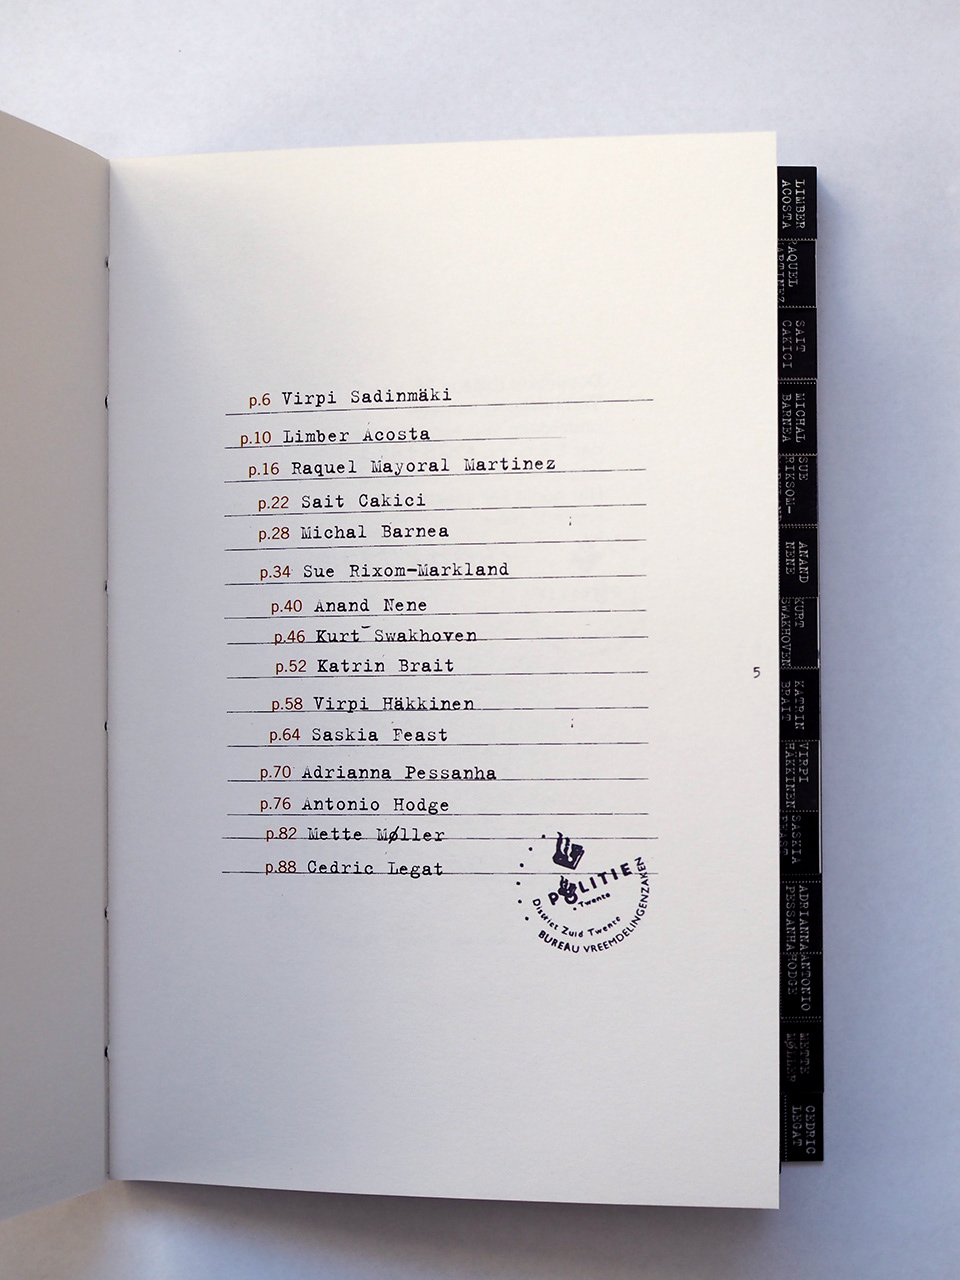 p.6 Virpi Sadinmäki
p.10 Limber Acosta
p.16 Raquel Mayoral Martinez
p.22 Sait Cakici
p.28 Michal Barnea
p.34 Sue Rixom-Markland
p.40 Anand Nene
p.46 Kurt Swakhoven
p.52 Katrin Brait
p.58 Virpi Häkkinen
p.64 Saskia Feast
p.70 Adrianna Pessanha
p.76 Antonio Hodge
p.82 Mette Møller
p.88 Cedric Legat
POLITIE
Twente
District Zuid Twente
BUREAU VREEMDELINGENZAKEN
5
LIMBER
ACOSTA
AQUEL
ARTINEZ
SAIT
CAKICI
MICHAL
BARNEA
SUE
RIKSOM-
ANAND
NENE
KURT
SWAKHOVEN
KATRIN
BRAIT
VIRPI
HÄKKINEN
SASKIA
FEAST
ADRIANNA
PESSANHA
ANTONIO
HODGE
METTE
MØLLER
CEDRIC
LEGAT